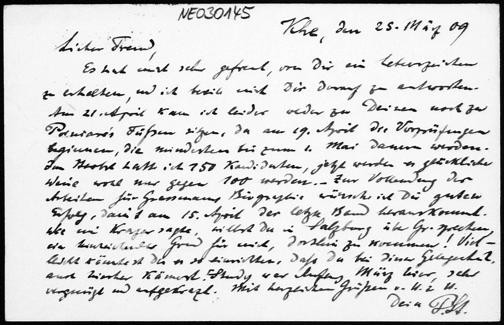 NE030145
Khe, den 25. März 09
Lieber Freund,
Es hat mich sehr gefreut, von Dir ein Lebenszeichen
zu erhalten, und ich beeile mich Dir darauf zu antworten.
Am 21 April kann ich leider weder zu Deinen noch zu
Füßen sitzen, da am 19. April die Vorprüfungen
beginnen, die mindestens bis zum 1. Mai dauern werden.
Im Herbst hatte ich 150 Kandidaten, jetzt werden es glücklicher
Weise wohl nur gegen 100 werden. – Zur Vollendung der
Arbeiten für Grassmanns Biographie wünsche ich Dir guten
Erfolg, damit am 15. April der letzte Band herauskommt.
Wie mir Krazer sagte, willst Du in Salzburg über sprechen,
ein Grund für mich, dorthin zu kommen! Viel-
leicht könntest Du es so einrichten, dass Du bei dieser Gelegenheit
auch hierher kämest. Study war Anfang März hier, sehr
vergnügt und aufgekratzt. Mit herzlichen Grüßen v. H. z. H.
Dein